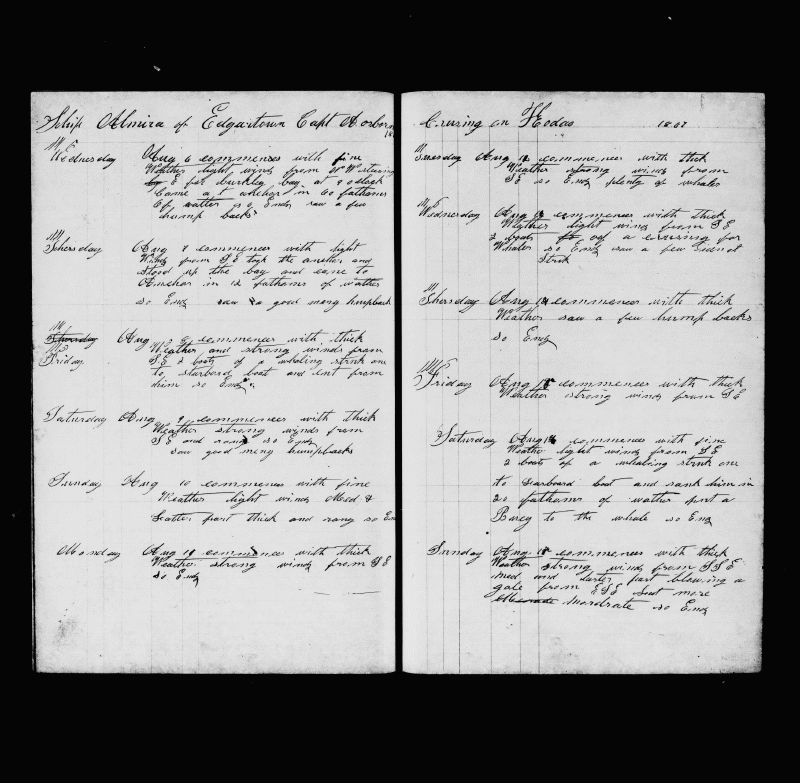 Schip Almira of Edgartown Capt Aosborn
Wednesday Aug 6 commences with fine
Weather light winds from
E for burkley bay at 9 oclock
Came a t ancher in 60 fathoms
of watter so Ends saw a few
hump backs
Thersday Aug commences with light
Winds from S E took the ancher and
Stood up the bay and came to
Ancher in 12 fathoms of watter
so Ends saw a good meny humpback
Thursday Aug commences with thick
Friday Weather and strong winds from
S E 2 boats of a whaling struk one
to starbord boat and cut from
him so Ends
Saturday Aug 9 commences with thick
Weather strong winds from
S E and so Ends
saw good meny humpbacks
Sunday Aug 10 commences with fine
Weather light winds Med &
Latter part thick and so En
Monday Aug commences with thick
Weather strong winds from S E
so Ends
Crusing on Hodas
Tuesday Aug commences with thick
Weather strong winds from
S E so Ends plenty of whales
Wednesday Aug commences with thick
Weather light winds from S E
2 boats of a crusing for
Whales so Ends saw a few
Struk
Thersday Aug commences with thick
Weather saw a few hump backs
so Ends
Friday Aug commences with thick
Weather strong winds from S E
Saturday Aug commences with fine
Weather light winds from S E
2 boats of a whaling struk one
to Larboard boat and sank him in
20 fathoms of watter put a
to the whale so Ends
Sunday Aug commences with thick
Weather strong winds from S S E
med and part blowing a
gale from E S E but more
Mordrate so Ends